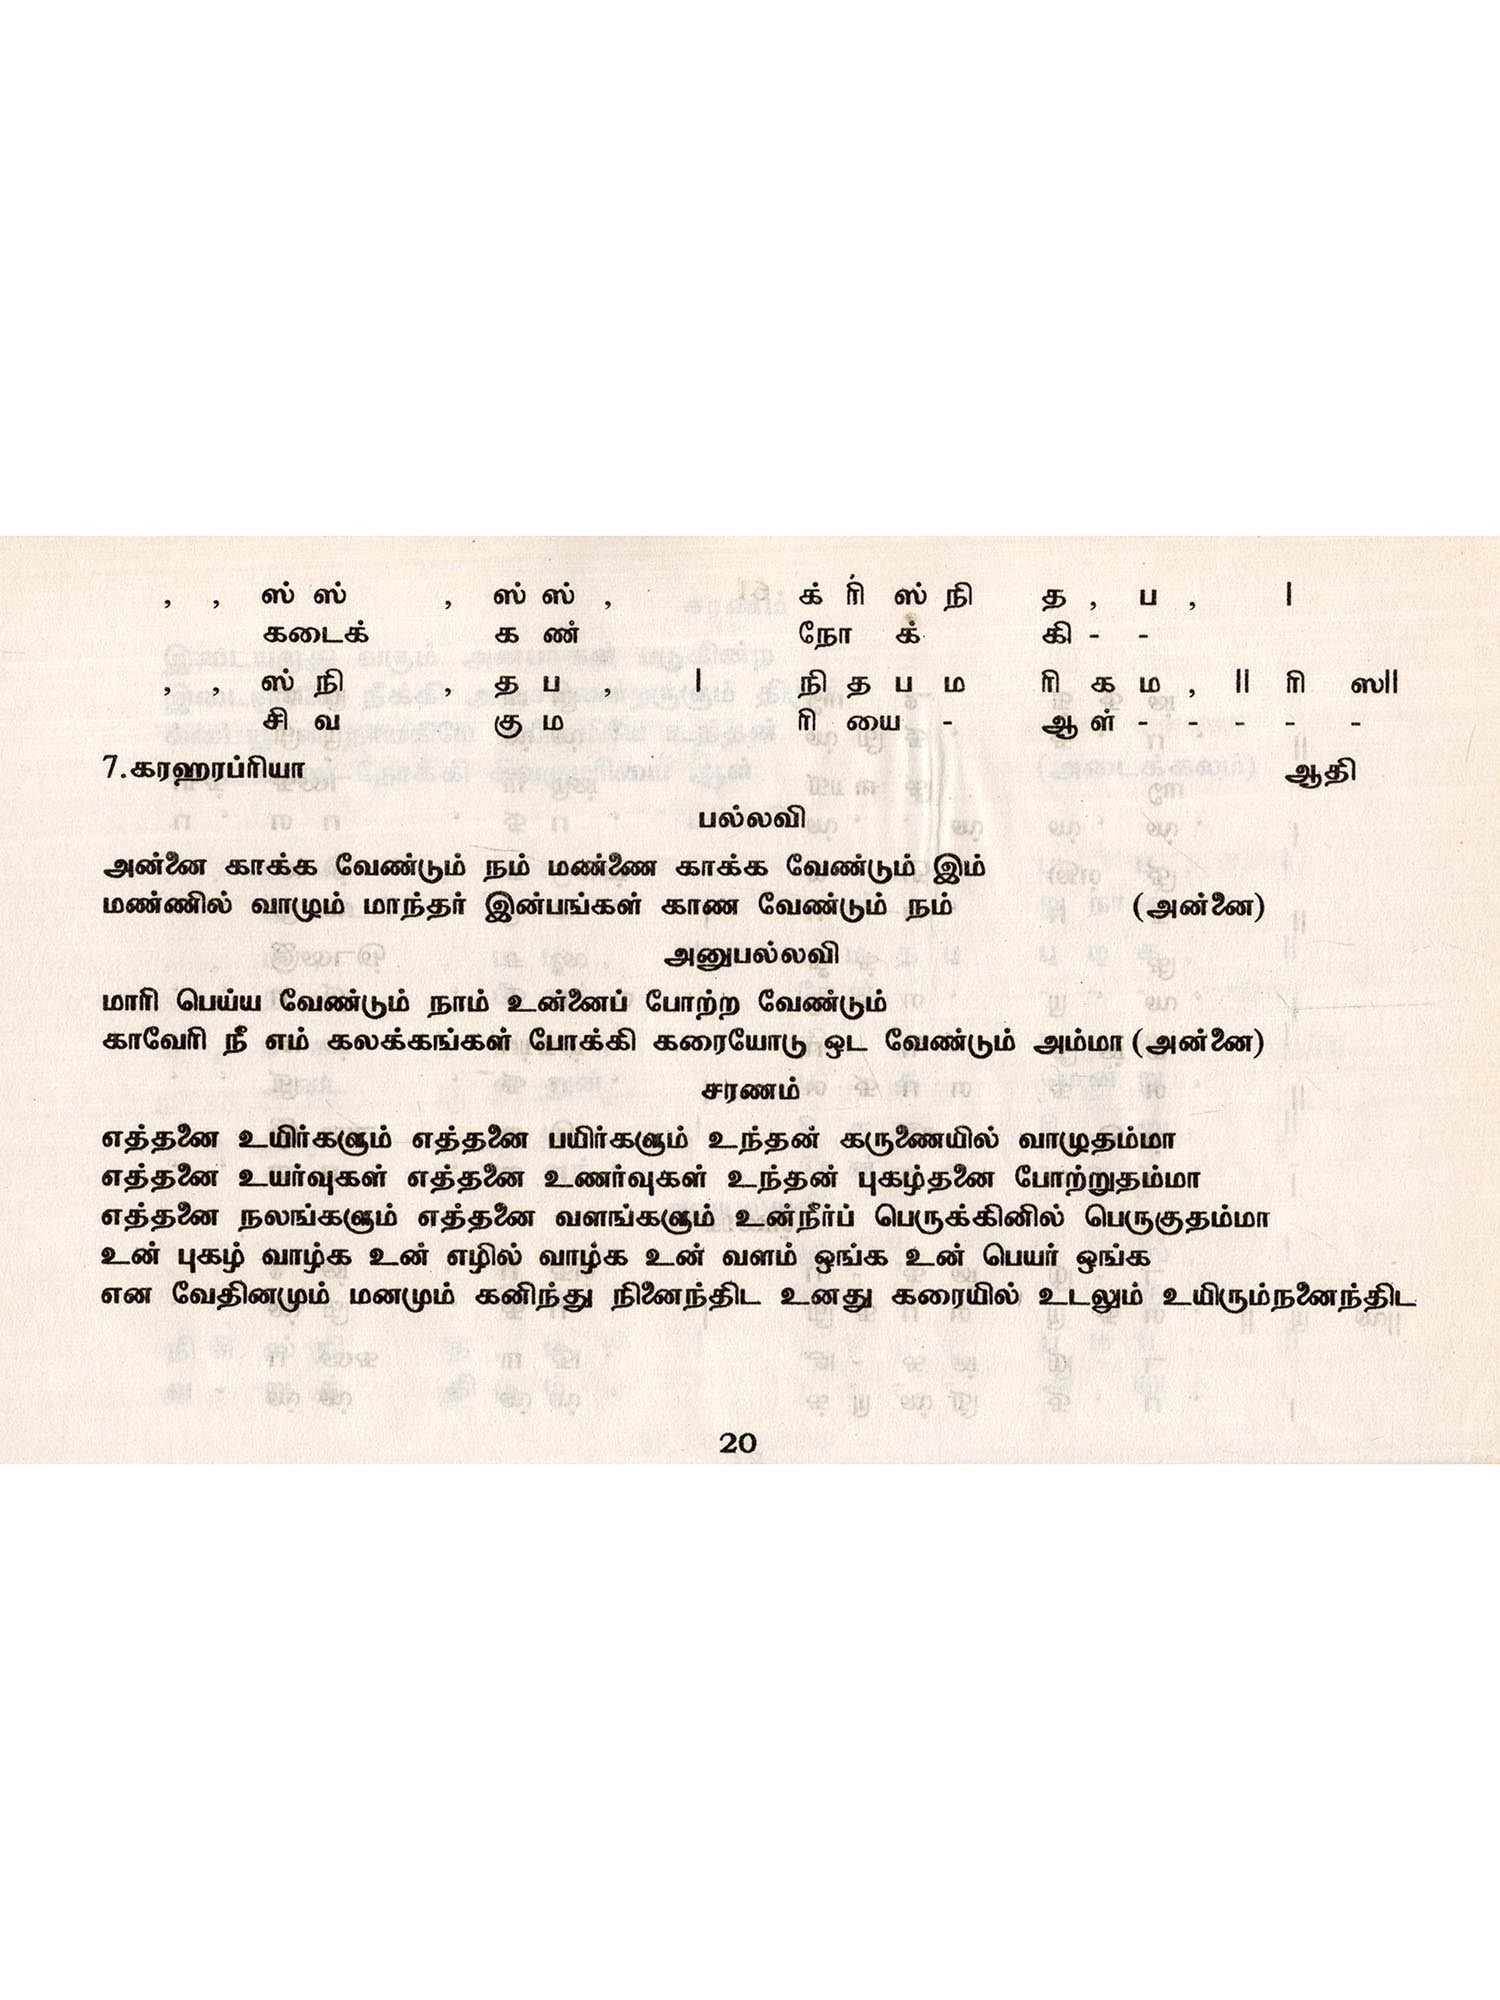 , , ஸ் ஸ் , ஸ் ஸ் , க் ரி ஸ் நி த , ப , |
கடைக் க ண் நோ க் கி - -
, , ஸ் நி , த ப , | நி த ப ம ரி க ம , || ரி ஸ||
சி வ கு ம ரி யை - ஆள் - - - - -
7.கரஹரப்ரியா ஆதி
பல்லவி
அன்னை காக்க வேண்டும் நம் மண்ணை காக்க வேண்டும் இம்
மண்ணில் வாழும் மாந்தர் இன்பங்கள் காண வேண்டும் நம் (அன்னை)
அனுபல்லவி
மாரி பெய்ய வேண்டும் நாம் உன்னைப் போற்ற வேண்டும்
காவேரி நீ எம் கலக்கங்கள் போக்கி கரையோடு ஒட வேண்டும் அம்மா (அன்னை)
சரணம்
எத்தனை உயிர்களும் எத்தனை பயிர்களும் உந்தன் கருணையில் வாழுதம்மா
எத்தனை உயர்வுகள் எத்தனை உணர்வுகள் உந்தன் புகழ்தனை போற்றுதம்மா
எத்தனை நலங்களும் எத்தனை வளங்களும் உன்நீர்ப் பெருக்கினில் பெருகுதம்மா
உன் புகழ் வாழ்க உன் எழில் வாழ்க உன் வளம் ஒங்க உன் பெயர் ஒங்க
என வேதினமும் மனமும் கனிந்து நினைந்திட உனது கரையில் உடலும் உயிரும்நனைந்திட
20